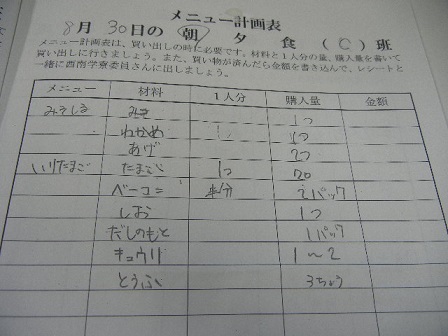 メニュー計画表
8月30日の 朝 夕 食 ( C ) 班
メニュー計画表は、買い出しの時に必要です。材料と1人分の量、購入量を書いて
買い出しに行きましょう。また、買い物が済んだら金額を書き込んで、レシートと
一緒に西南学意委員さんに出しましょう。
メニュー 材料 1人分 購入量 金額
みそしる みそ 1つ
わかめ 1つ
あげ 2つ
いりたまご たまご 1つ 20
ベーコン 半分 2パック
しお 1つ
だしのもと 1パック
キュウリ 1〜2
とうふ 3ちょう